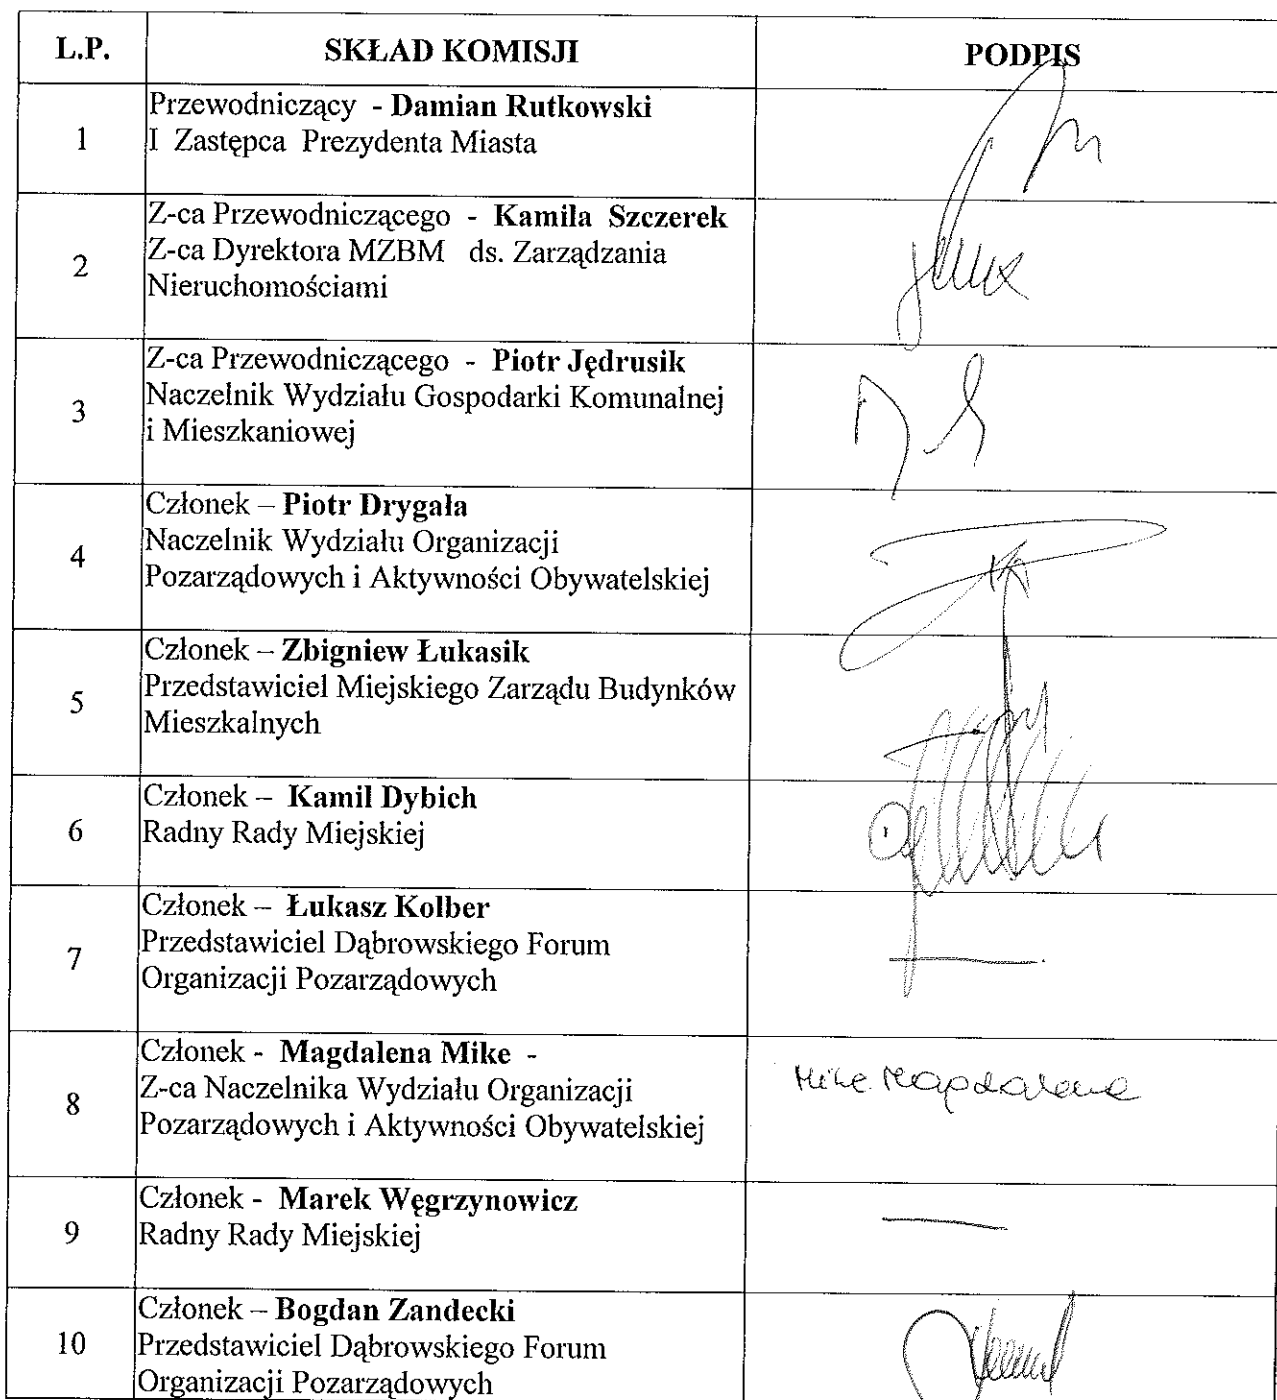 L.P. SKŁAD KOMISJI PODPIS
1
Przewodniczący - Damian Rutkowski
I Zastępca Prezydenta Miasta
2
Z-ca Przewodniczącego - Kamila Szczerek
Z-ca Dyrektora MZBM ds. Zarządzania
Nieruchomościami
3
Z-ca Przewodniczącego - Piotr Jędrusik
Naczelnik Wydziału Gospodarki Komunalnej
i Mieszkaniowej
4
Członek – Piotr Drygała
Naczelnik Wydziału Organizacji
Pozarządowych i Aktywności Obywatelskiej
5
Członek – Zbigniew Łukasik
Przedstawiciel Miejskiego Zarządu Budynków
Mieszkalnych
6
Członek – Kamil Dybich
Radny Rady Miejskiej
7
Członek – Łukasz Kolber
Przedstawiciel Dąbrowskiego Forum
Organizacji Pozarządowych
8
Członek - Magdalena Mike -
Z-ca Naczelnika Wydziału Organizacji
Pozarządowych i Aktywności Obywatelskiej
Mike Magdalena
9
Członek - Marek Węgrzynowicz
Radny Rady Miejskiej
10
Członek – Bogdan Zandecki
Przedstawiciel Dąbrowskiego Forum
Organizacji Pozarządowych